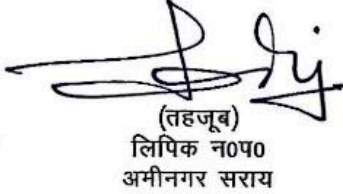 (तहजूब)
लिपिक न0प0
अमीनगर सराय